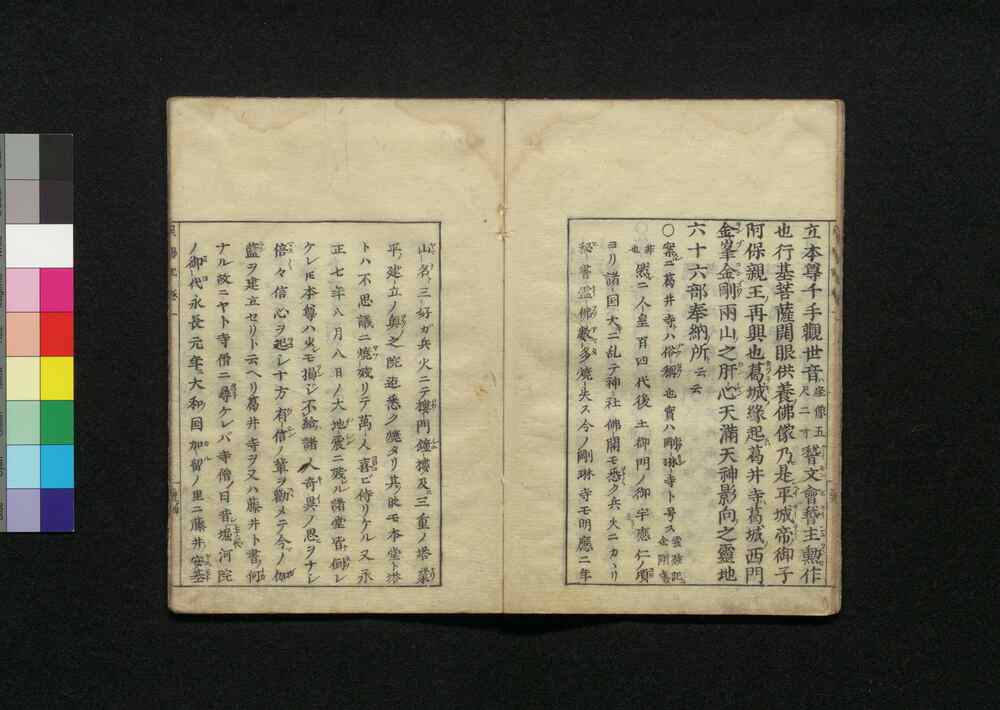 立本尊千手觀世音座像五尺二寸稽文會稽主勲作
也行基菩薩開眼供養佛像乃是平城帝御子
阿保親王再興也葛城縁起葛井寺葛城西門
金峯金剛兩山之肝心天滿天神影向之靈地
六十六部奉納所云云
○案ニ葛井寺ハ俗稱也實ハ剛琳寺ト号ス
然ニ人皇百四代後土御門ノ御宇應仁ノ頃
ヨリ諸国大ニ乱テ神社佛閣モ悉ク兵火ニカヽリ
秘書霊佛數多燒失ス今ノ剛琳寺モ明應二年
山名三好ガ兵火ニテ樓門鐘樓及三重ノ塔
平建立ノ奥之院迄悉ク燒タリ其時モ本堂ト
トハ不思議ニ燒残リテ萬人喜ビ侍リケル又永
正七年八月八日ノ大地震ニ残ル諸堂皆倒レ
ケレ𪜈本尊ハ少モ損ジ不給諸人奇異ノ思ヲナシ
倍々信心ヲ起シ十方有信ノ輩ヲ勸メテ今ノ伽
藍ヲ建立セリト云ヘリ葛井寺ヲ又ハ藤井ト書ハ何
ナル故ニヤト寺僧ニ尋ケレバ寺僧ノ曰昔堀河院
ノ御代永長元年大和国加留ノ里ニ藤井安基